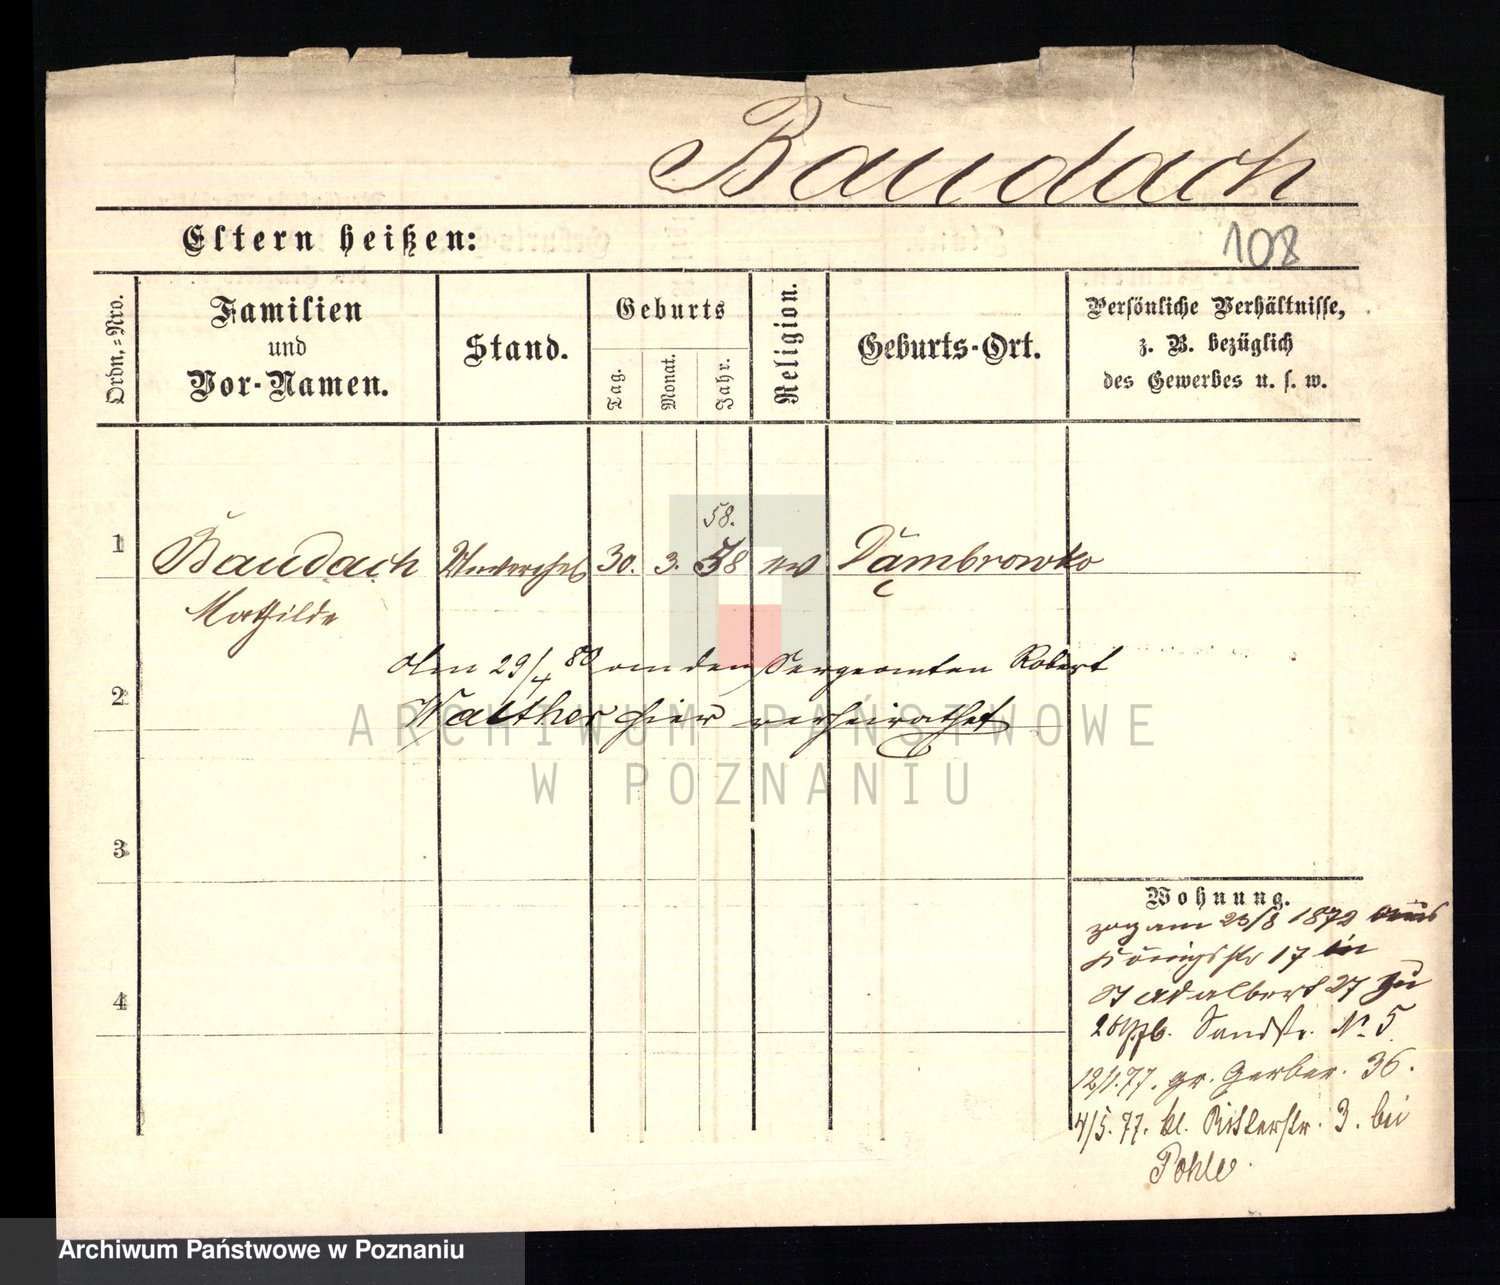 Baudach
Eltern heißen:
108
Ordn.-Nro.
Familien
und
Vor-Namen.
Stand.
Geburts
Tag.
Monat.
Jahr.
Religion.
Geburts-Ort.
Persönliche Verhältnisse,
z. B. bezüglich
des Gewerbes u. s. w.
58.
1 Baudach 30. 3. 58 ev Dąmbrowko
Mathilde
2
Walther hier verheirathet
ARCHIWUM PAŃSTWOWE
W POZNANIU
3
Wohnung.
zog am 23/8 1872 aus
Königsstr 17 in
4
St Adalbert 27 zu
Sandstr. No 5
12/1.77. gr. Gerber. 36.
4/5.77. kl. Ritterstr. 3. bei
Pohle.
Archiwum Państwowe w Poznaniu